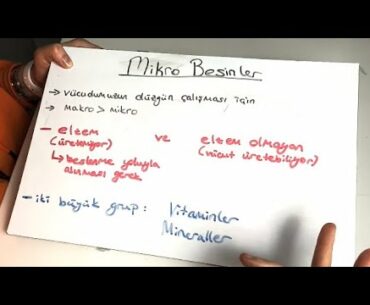 Mikro Besinler
→ vücudumuzun düzgün çalışması için
→ makro > mikro
- elzem ve elzem olmayan
(üretemiyor) (vücut üretebiliyor)
↳ beslenme yoluyla
alınması gerek
- iki büyük grup : Vitaminler
Mineraller